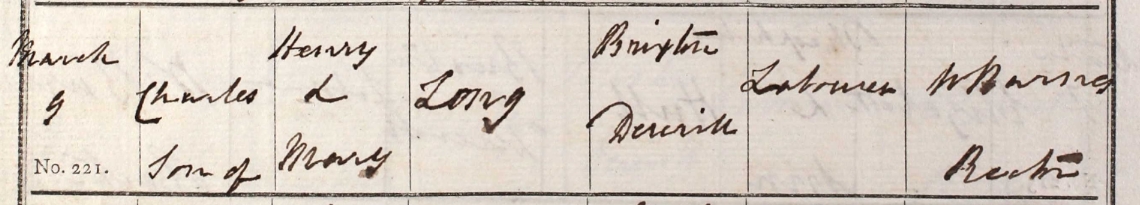 March
9
No. 221.
Charles
Son of
Henry
&
Mary
Long
Brixton
Deverill
Labourer
W Barnes
Rector